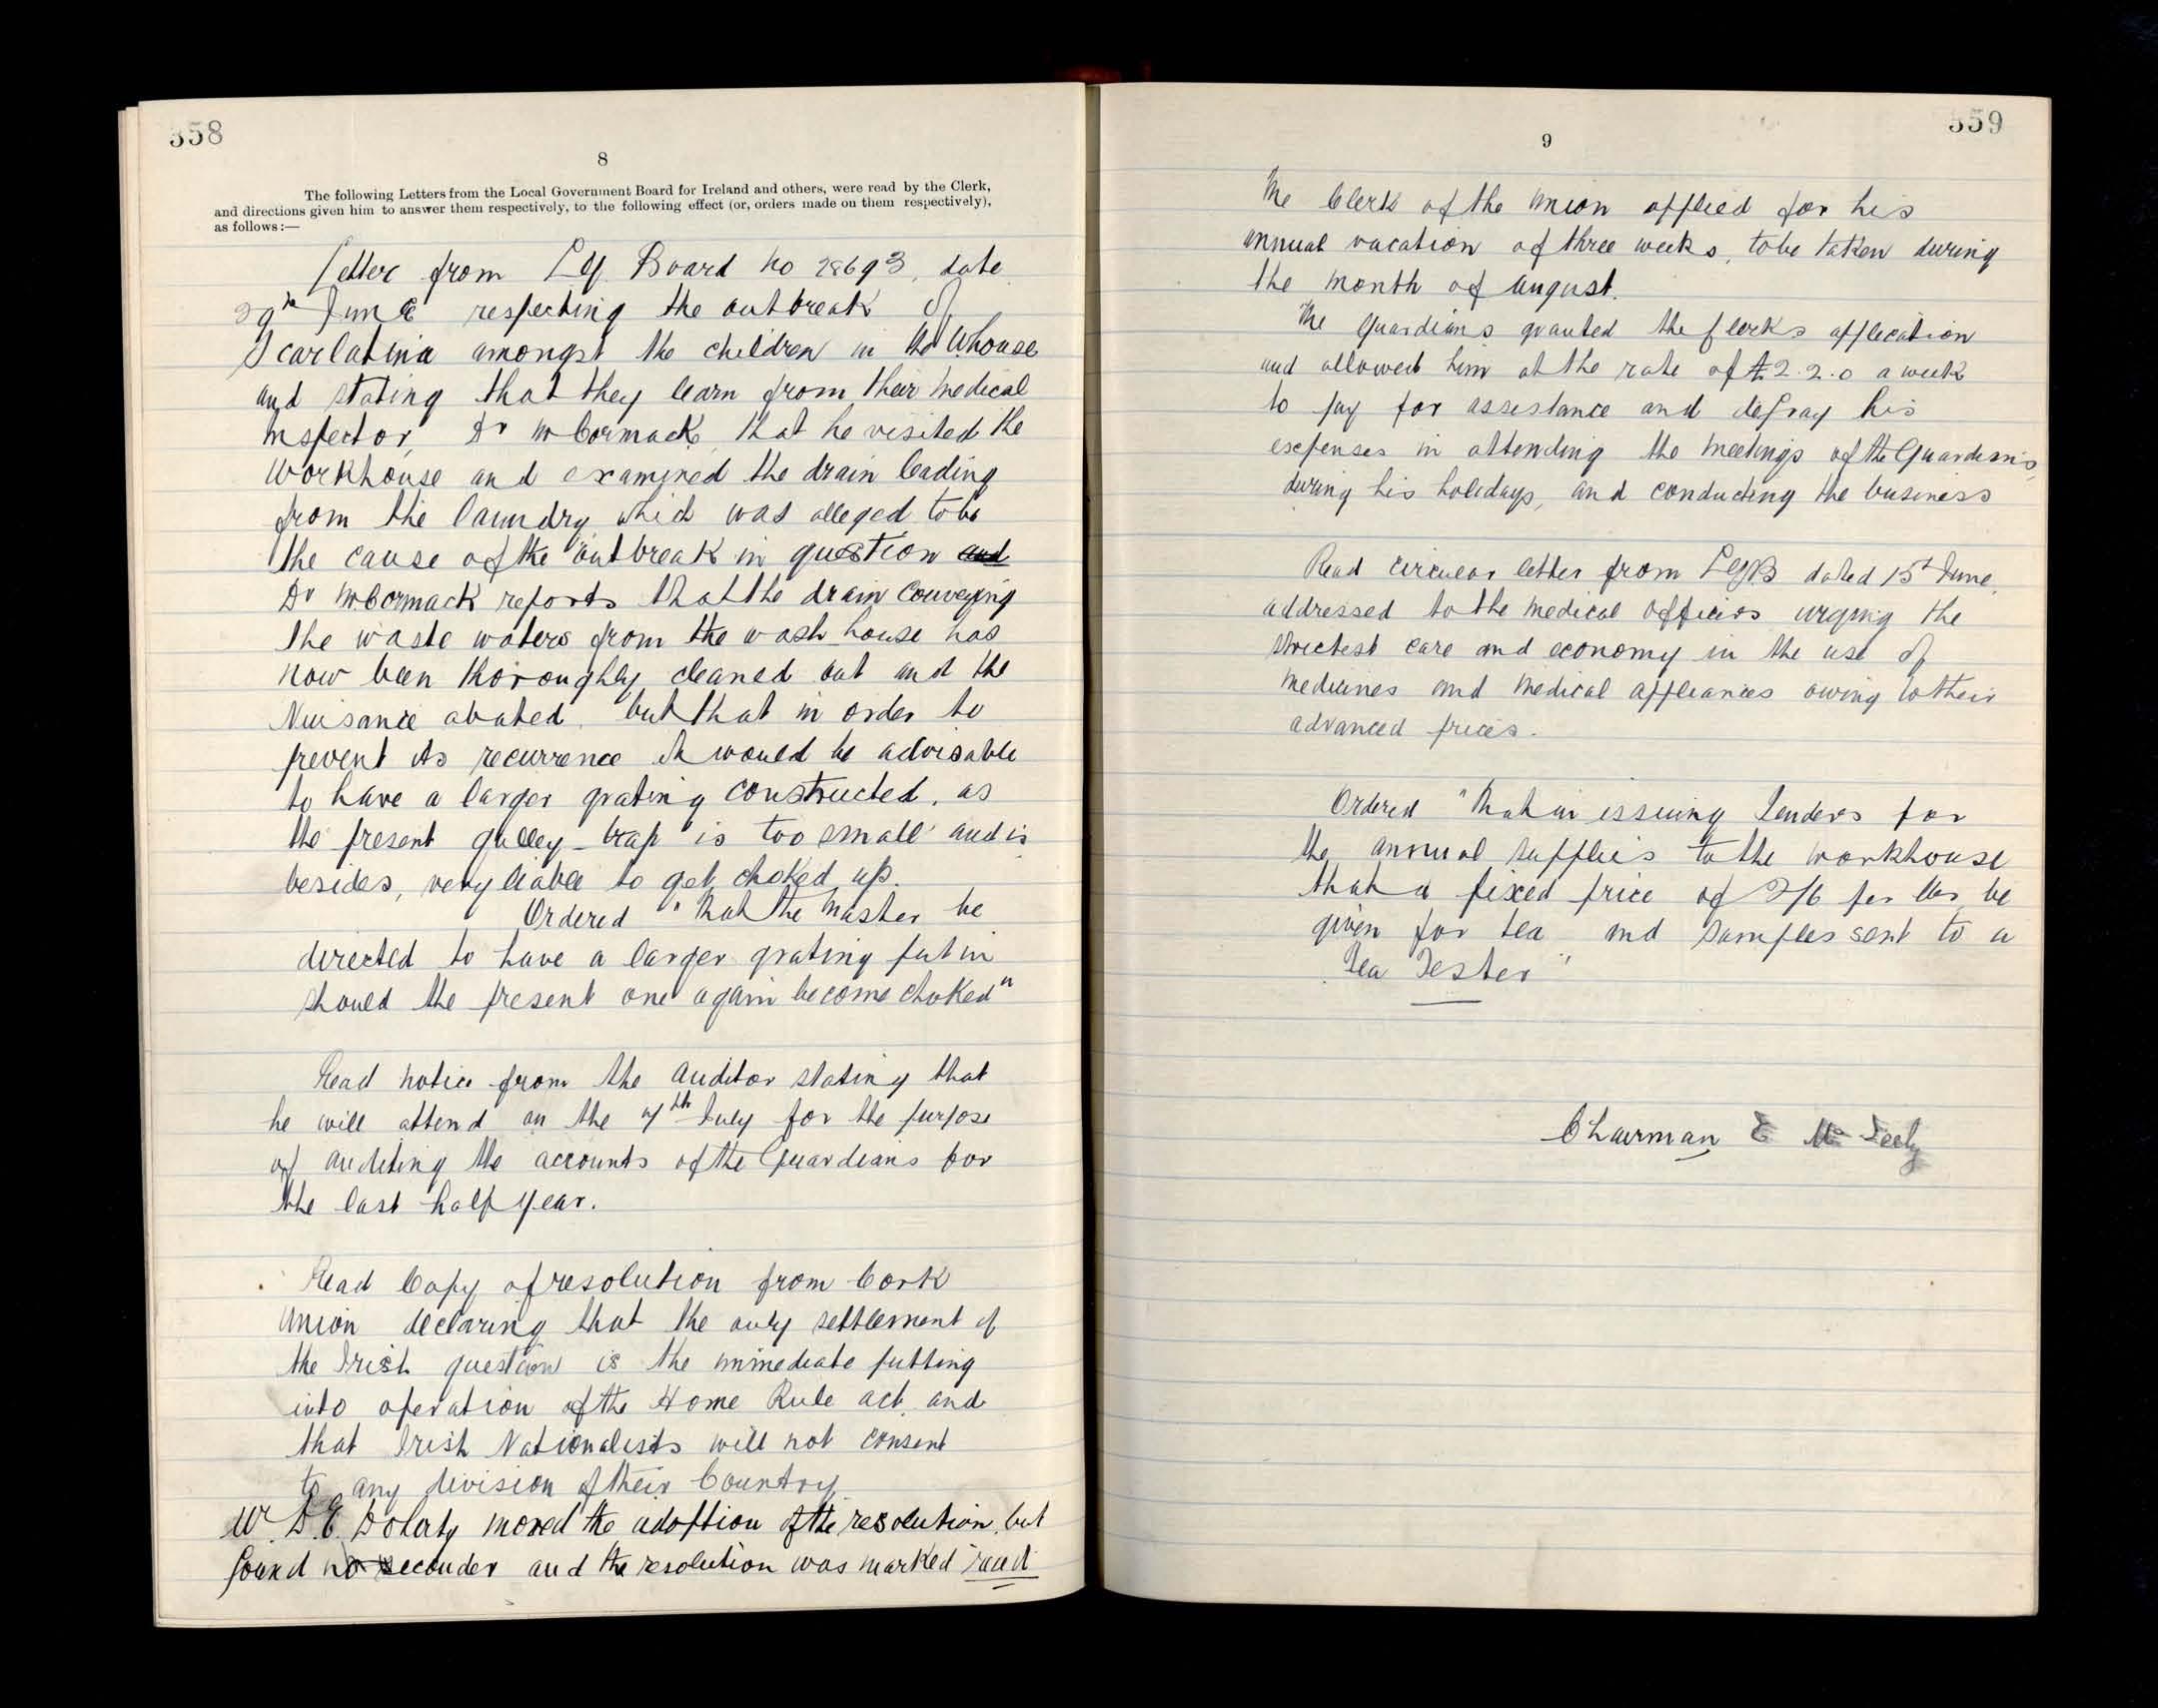 358
8
The following Letters from the Local Government Board for Ireland and others, were read by the Clerk,
and directions given him to answer them respectively, to the following effect (or, orders made on them respectively),
as follows:—
Letter from LG Board No 28693, date
29th June respecting the outbreak of
Scarlatina amongst the children in the Whouse
and stating that they learn from their medical
Inspector, Dr McCormack, that he visited the
Workhouse and examined the drain leading
from the laundry which was alleged to be
the cause of the outbreak in question and
Dr McCormack reports that the drain conveying
the waste waters from the wash house has
now been thoroughly cleaned out and the
Nuisance abated. but that in order to
prevent its recurrence it would be advisable
to have a larger grating constructed, as
the present gulley-trap is too small and is
besides, very liable to get choked up.
Ordered "That the Master be
directed to have a larger grating put in
should the present one again become choked"
Read notice from the auditor stating that
he will attend on the 7th July for the purpose
of auditing the accounts of the Guardians for
the last half year.
Read Copy of resolution from Cork
Union declaring that the only settlement of
the Irish question is the immediate putting
into operation of the Home Rule act and
that Irish Nationalists will not consent
to any division of their Country.
Mr D.E. Doherty moved the adoption of the resolution, but
found no seconder and the resolution was marked "read"
559
9
The Clerk of the Union applied for his
annual vacation of three weeks, to be taken during
the month of August.
The Guardians granted the Clerks application
and allowed him at the rate of £2.2.0 a week
to pay for assistance and defray his
expenses in attending the meetings of the Guardians
during his holidays, and conducting the business
Read circular letter from LGB dated 15th June,
addressed to the medical officers urging the
strictest care and economy in the use of
medicines and medical appliances owing to their
advanced prices.
Ordered "That in issuing Tenders for
the annual supplies to the workhouse
that a fixed price of 2/6 per lb be
given for tea and samples sent to a
Tea Tester"
Chairman E McFeely